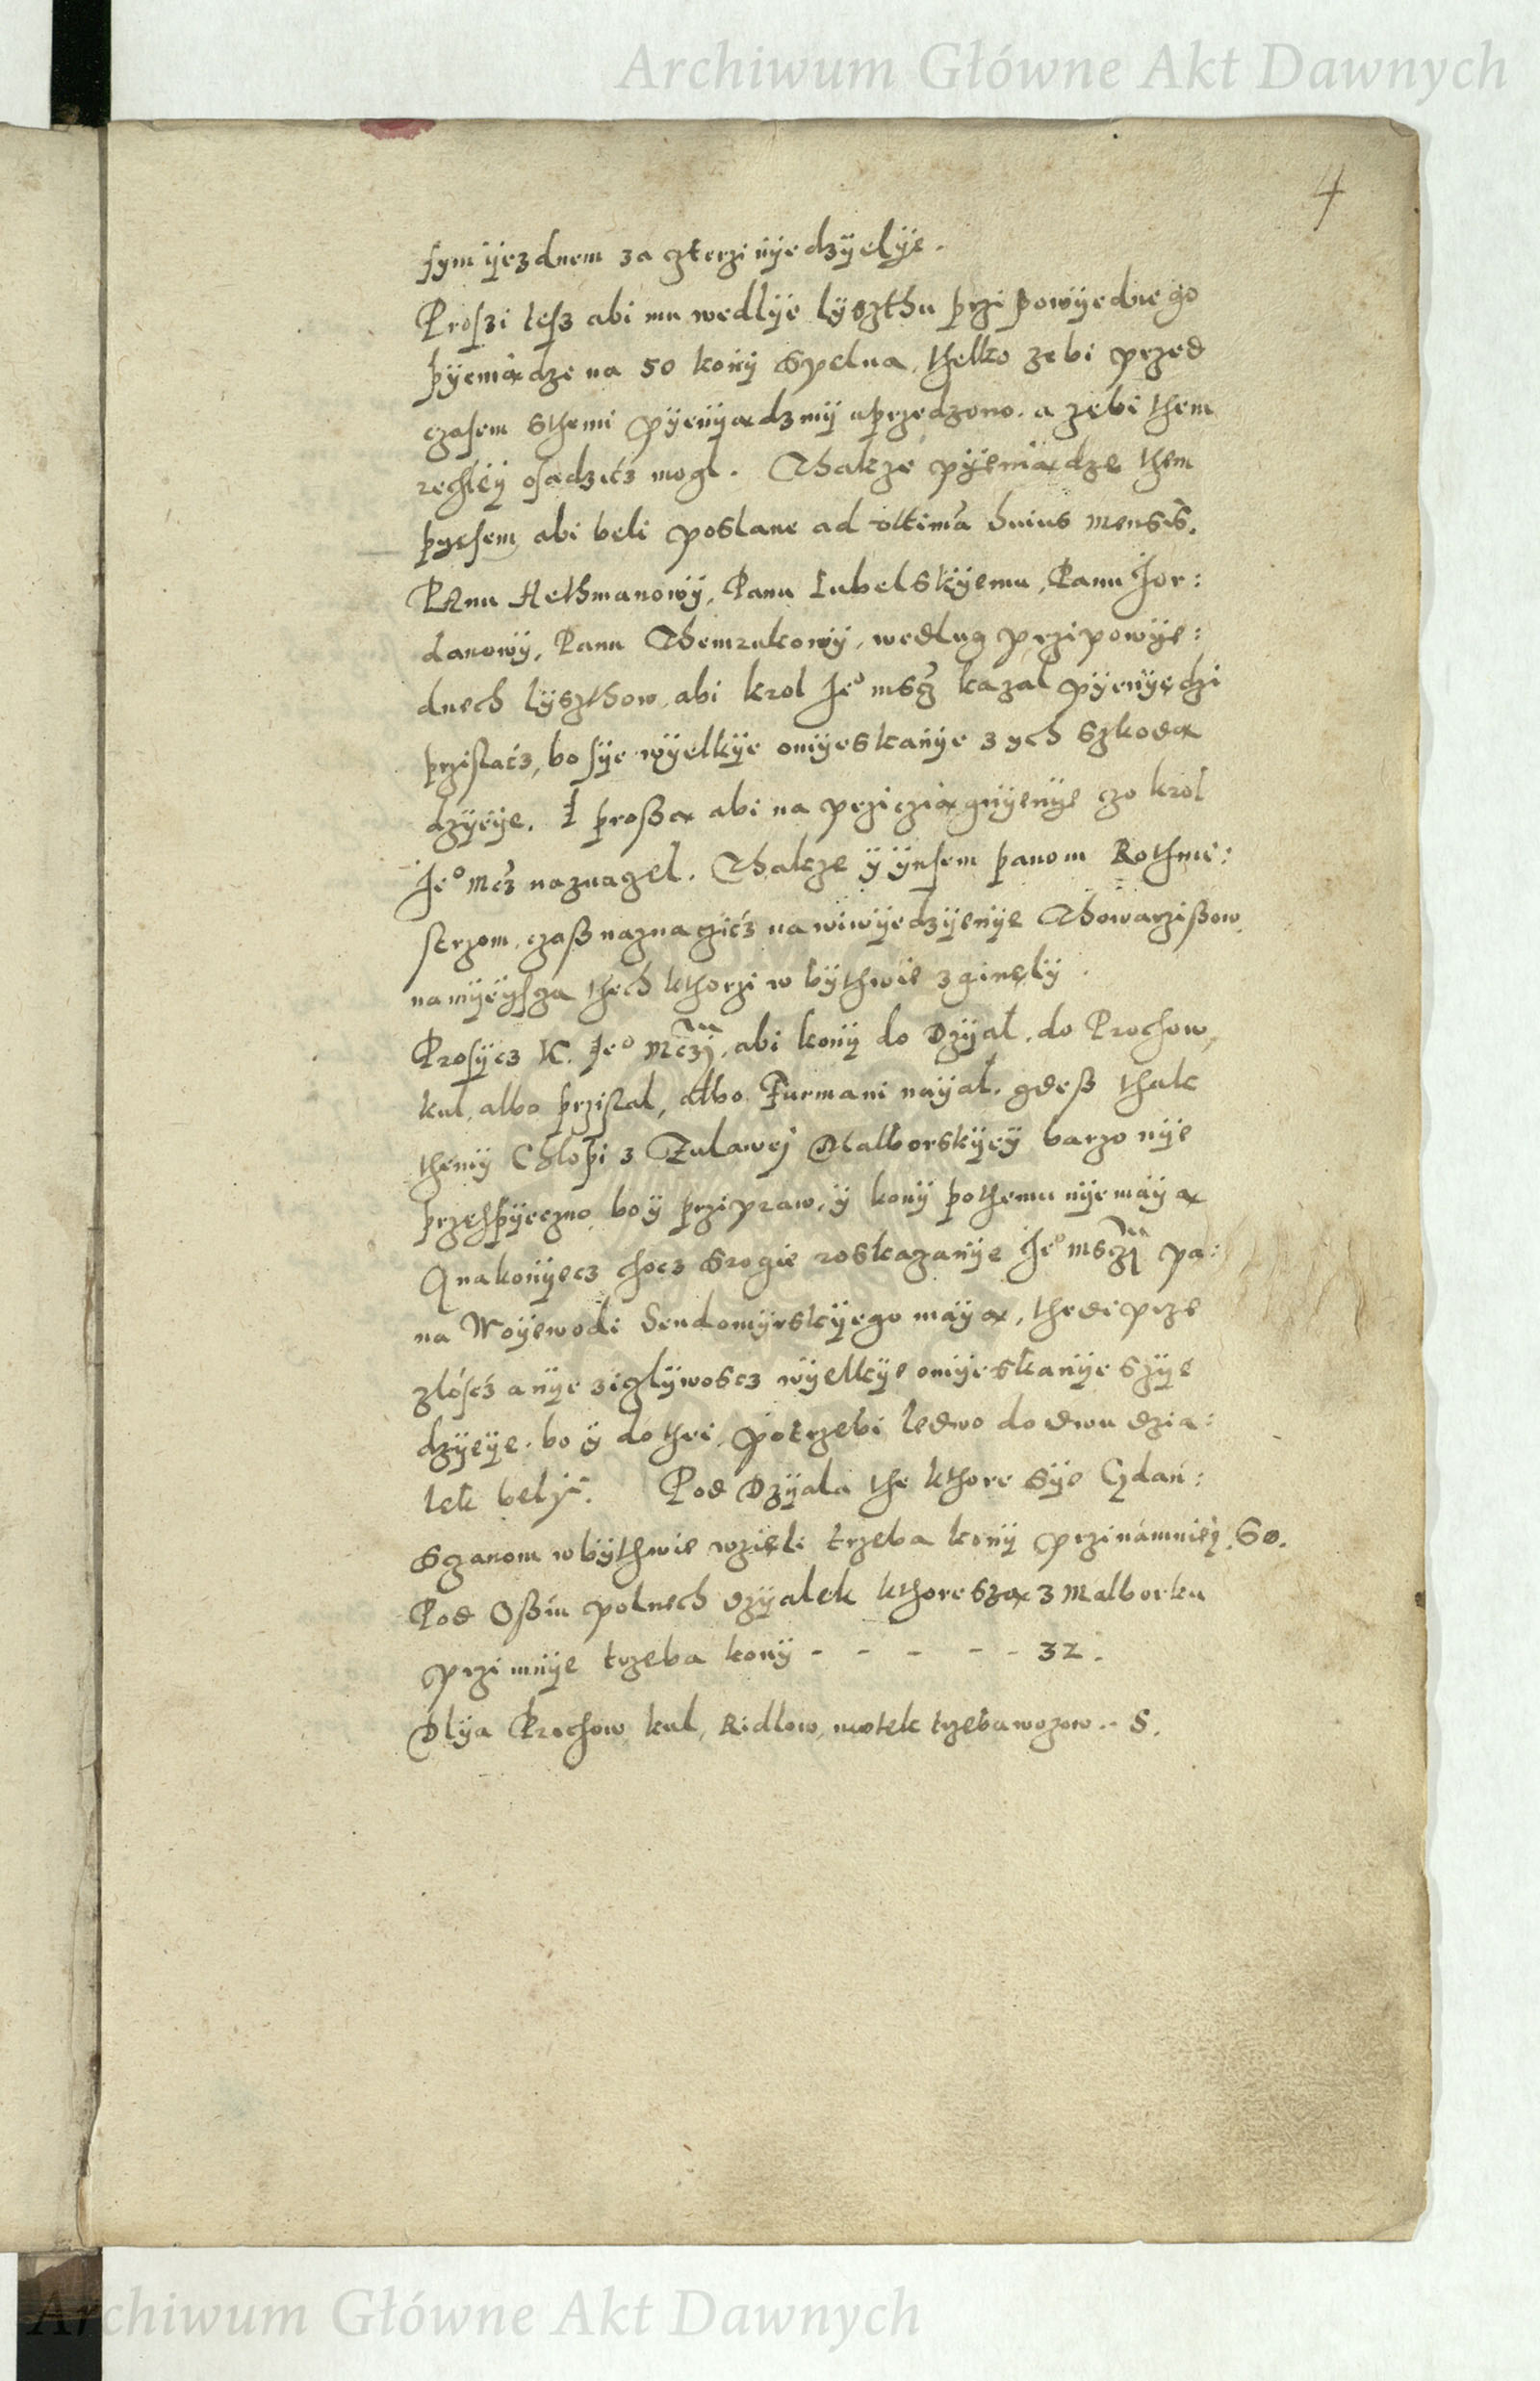 Archiwum Główne Akt Dawnych
4
sym yezdnem za czterzi nyedzyelye.
Proszi tesz abi mu wedlye lyszthu przipowyednego
pyeniądze na 50 kony spelna, thelko zebi przed
czasem sthemi pyenyądzmy uprzedzono. a zebi them
rechley osadzicz mogl. Thakze pyeniądze them
pyesem abi beli poslane ad ultima huius mensis.
PAnu Hethmanowy, Panu Lubelskyemu, Panu Jor:
danowy, Panu Themrukowy, wedlug przipowye:
dnech lyszthow, abi krol Jeo mscz kazal pyenyędzi
przislacz, bo sye wyelkye omyeskanye z ych szkodą
dzyeye. I proszą abi na prziczią gnyenye czo krol
Jeo mcz naznagel. Thakze y ynsem panom Rothmi:
strzom, czasz naznaczicz na wiwyedzyenye Thowarziszow
na myeysza thech kthorzi w bythwie zginęly.
Prosycz K. Jeo Mczi, abi kony do Dzyal, do Prochow,
kul, albo przislal, albo Furmani nayal, gdesz thak
themy Chlopi z Zulawej Malborskyey barzo nye
przespyeczno, bo y przipraw, y kony pothemu nye mayą
A nakonyecz chocz srogie roskazanye Jeo msczi pa:
na Woyewodi Sendomyrskyego mayą, thedi prze
zloscz a nye ziczlywoscz wyelkye omyeskanye szye
dzyeye. bo y do thei potrzebi ledwo do dwu dzia:
lek bely. Pod Dzyala the kthore sye Gdań:
sczanom w bythwie wzięli trzeba kony przinamniey. 50.
Pod Oszm polnech dzyalek kthore szą z Malborku
przimnye trzeba kony - - - - - 32.
Dlya Prochow, kul, Ridlow, motek trzeba wozow - 8.
Archiwum Główne Akt Dawnych